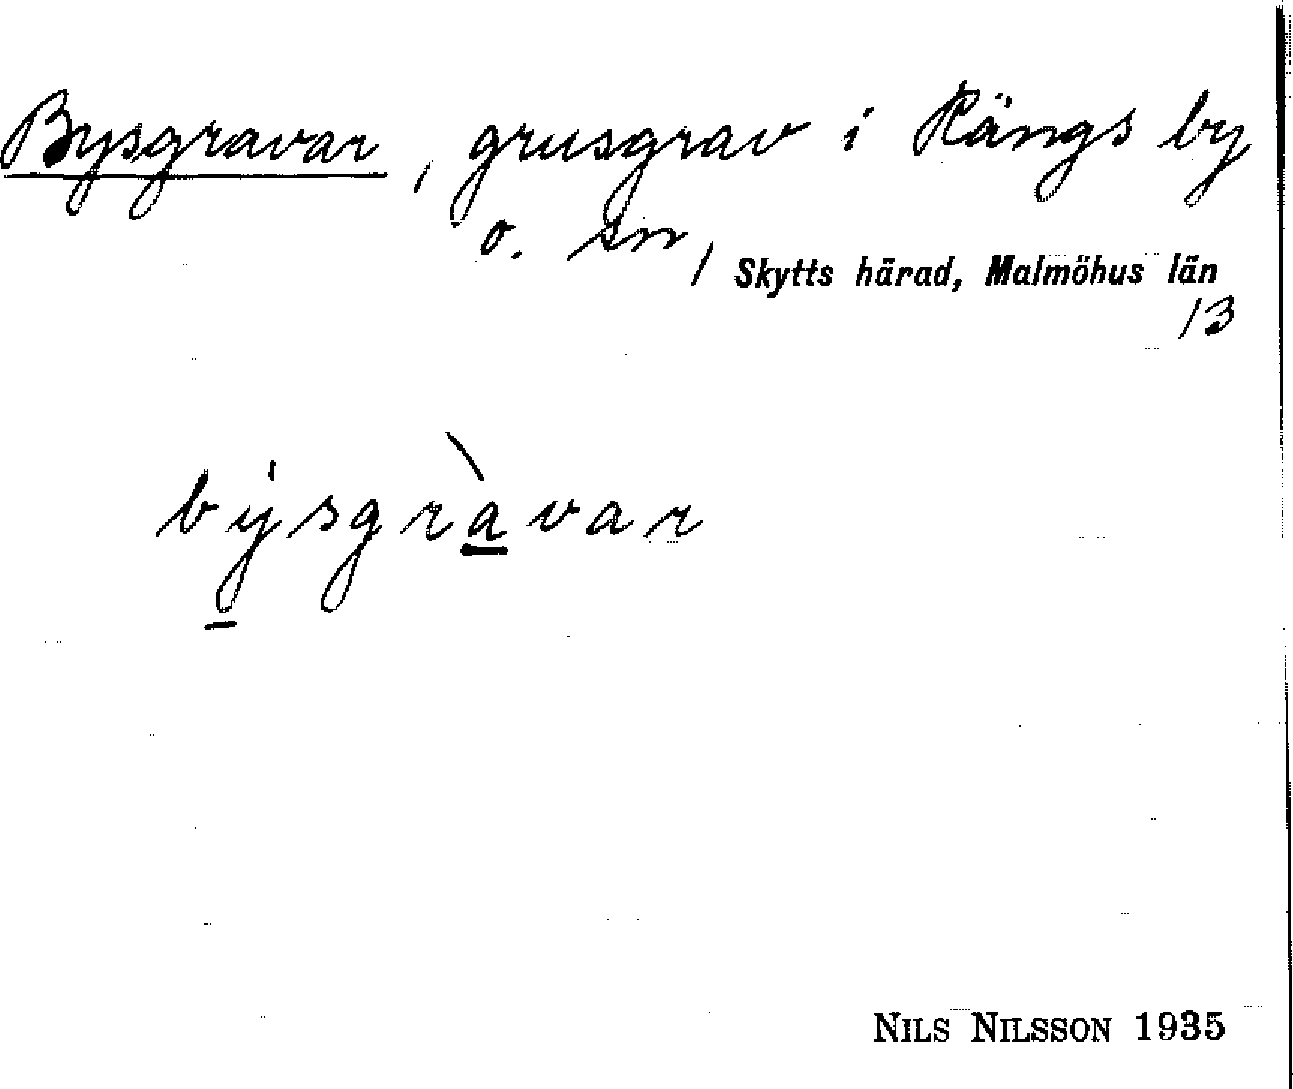 Bysgravar, grusgrav i Rängs by
o. sn, Skytts härad, Malmöhus län
13
býsgràvar
NILS NILSSON 1935